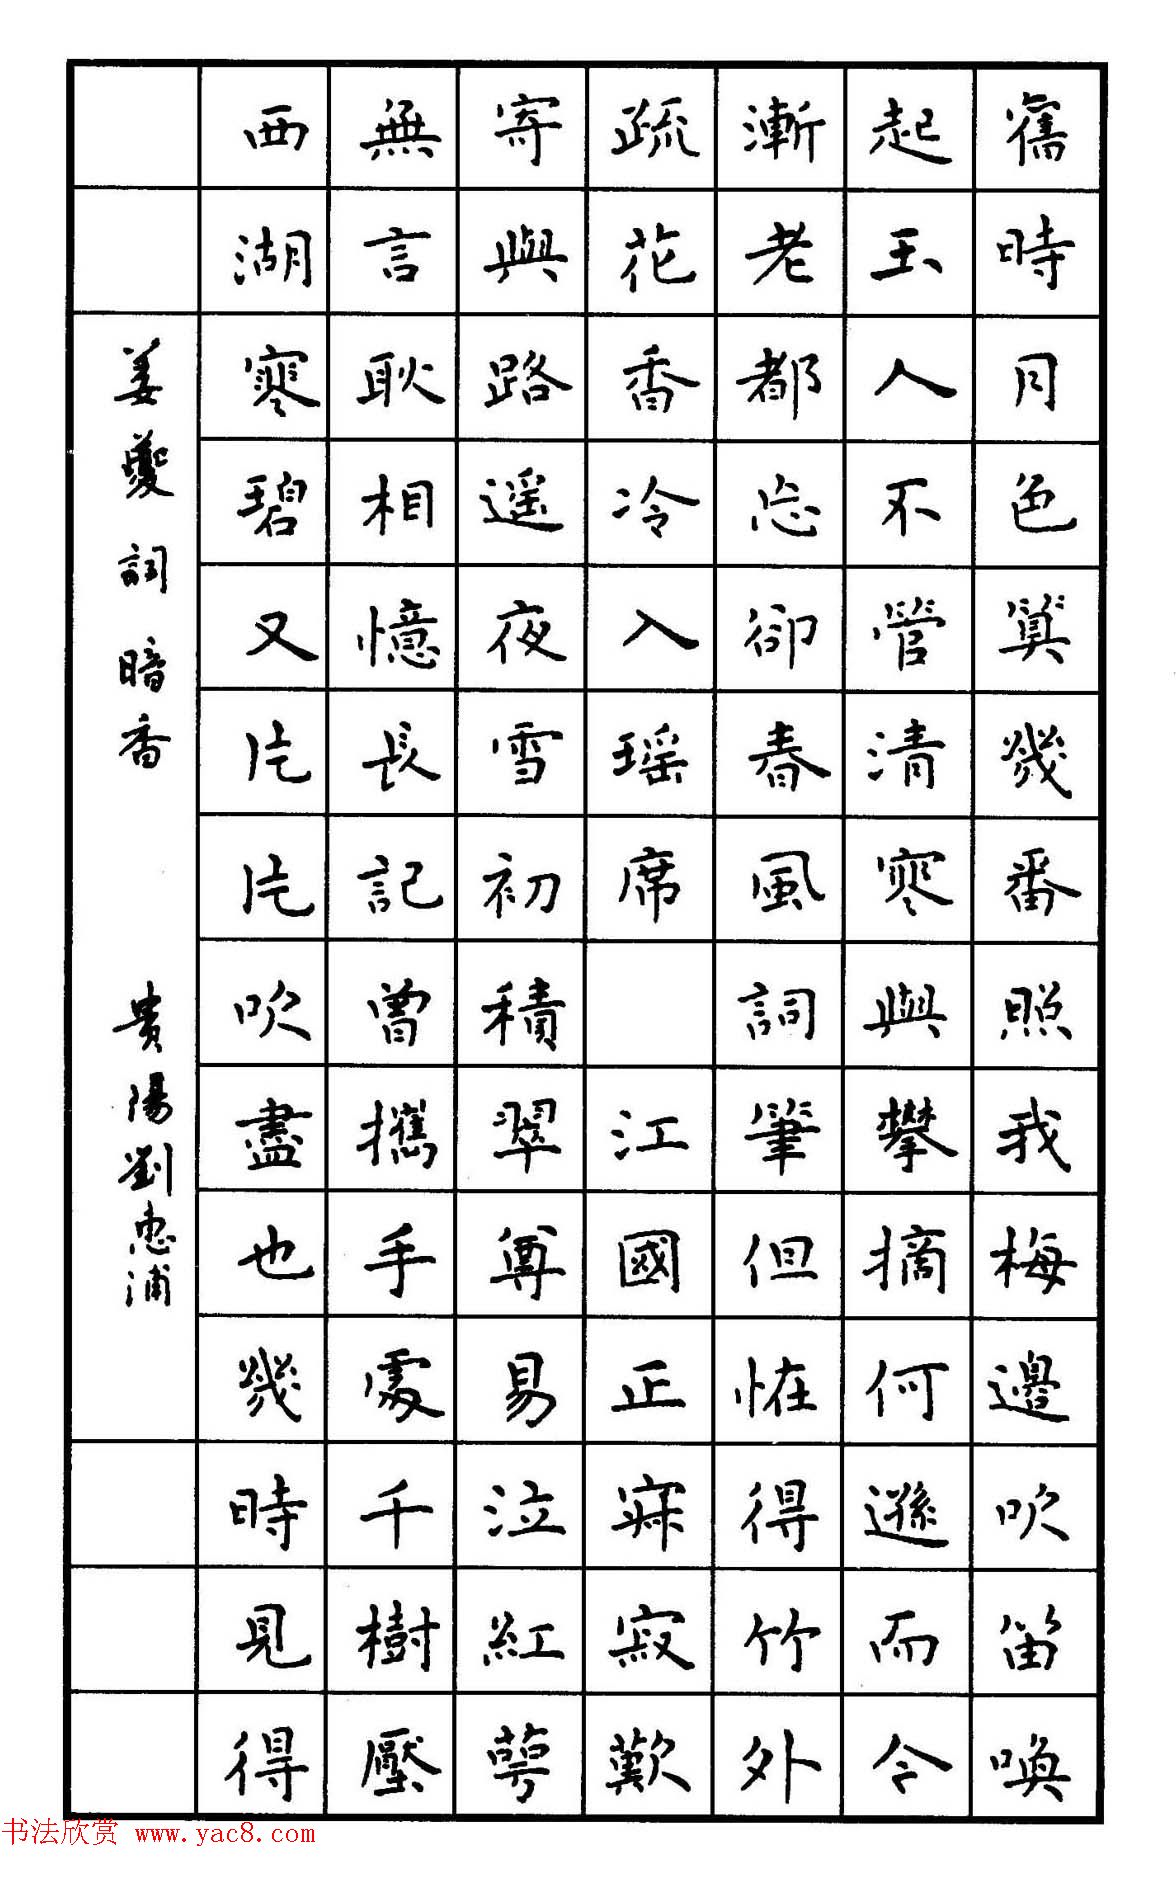 舊時月色算幾番照我梅邊吹笛喚
起玉人不管清寒與攀摘何遜而今
漸老都忘卻春風詞筆但恠得竹外
疏花香冷入瑤席 江國正寂寂歎
寄與路遥夜雪初積翠尊易泣紅萼
無言耿相憶長記曾攜手處千樹壓
西湖寒碧又片片吹盡也幾時見得
姜夔詞暗香 貴陽劉惠浦
书法欣赏 www.yac8.com